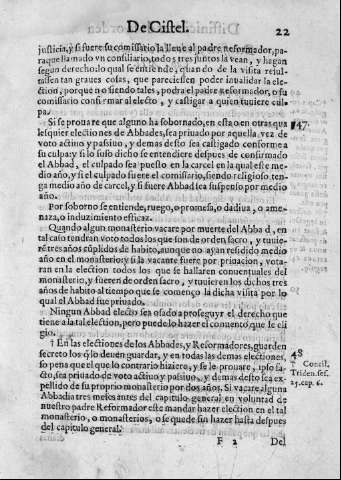 De Cistel.
22
justicia, y si fuere su comissario la lleue al padre Reformador, pa-
raque llamado vn consiliario, todos tres juntos la vean, y hagan
segun derecho lo qual se entiende, quando de la visita resul-
tassen tan graues cosas, que pareciessen poder inualidar la ele-
ction, porque no siendo tales, podra el padre Reformador, o su
comissario confirmar al electo, y castigar a quien tuuiere cul-
pa.
Si se prouare que alguno ha sobornado, en esta o en otras qua
47.
lesquier electiones de Abbades, sea priuado por aquella vez de
voto actiuo y passiuo, y demas desto sea castigado conforme a
su culpa: y si lo suso dicho se entendiere despues de confirmado
el Abbad, el culpado sea puesto en la carcel en la qual este me-
dio año, y si el culpado fuere el comissario, siendo religioso ten-
ga medio año de carcel, y si fuere Abbad sea suspenso por medio
año.
Por soborno se entiende, ruego, o promesa, o dadiua, o ame-
naza, o induzimiento efficaz.
Quando algun monasterio vacare por muerte del Abbad, en
tal caso tendran voto todos los que son de orden sacro, y tuuie-
rē tres años cūplidos de habito, aunque no ayan residido medio
año en el monasterio: y si la vacante fuere por priuacion, vota-
ran en la election todos los que se hallaren conuentuales del
monasterio, y fueren de orden sacro, y tuuieren los dichos tres
años de habito al tiempo que se començo la dicha visita por lo
qual el Abbad fue priuado.
Ningun Abbad electo sea osado a proseguyr el derecho que
tiene a la tal election, pero puede lo hazer el conuento que le eli
gio.
† En las electiones de los Abbades, y Reformadores, guarden
48
secreto los q̃ lo deuen guardar, y en todas las demas electiones,
† Concil.
so pena que el que lo contrario hiziere, y se le prouare, ipso fa-
Triden. ses.
cto, sea priuado de voto actiuo y passiuo, y demas desto sea ex-
25. cap. 6.
pellido de su proprio monasterio por dos años. Si vacare alguna
Abbadia tres meses antes del capitulo general, en voluntad de
nuestro padre Reformador este mandar hazer election en el tal
monasterio, o monasterios, o se quede sin hazer hasta despues
del capitulo general.
F 2
Del